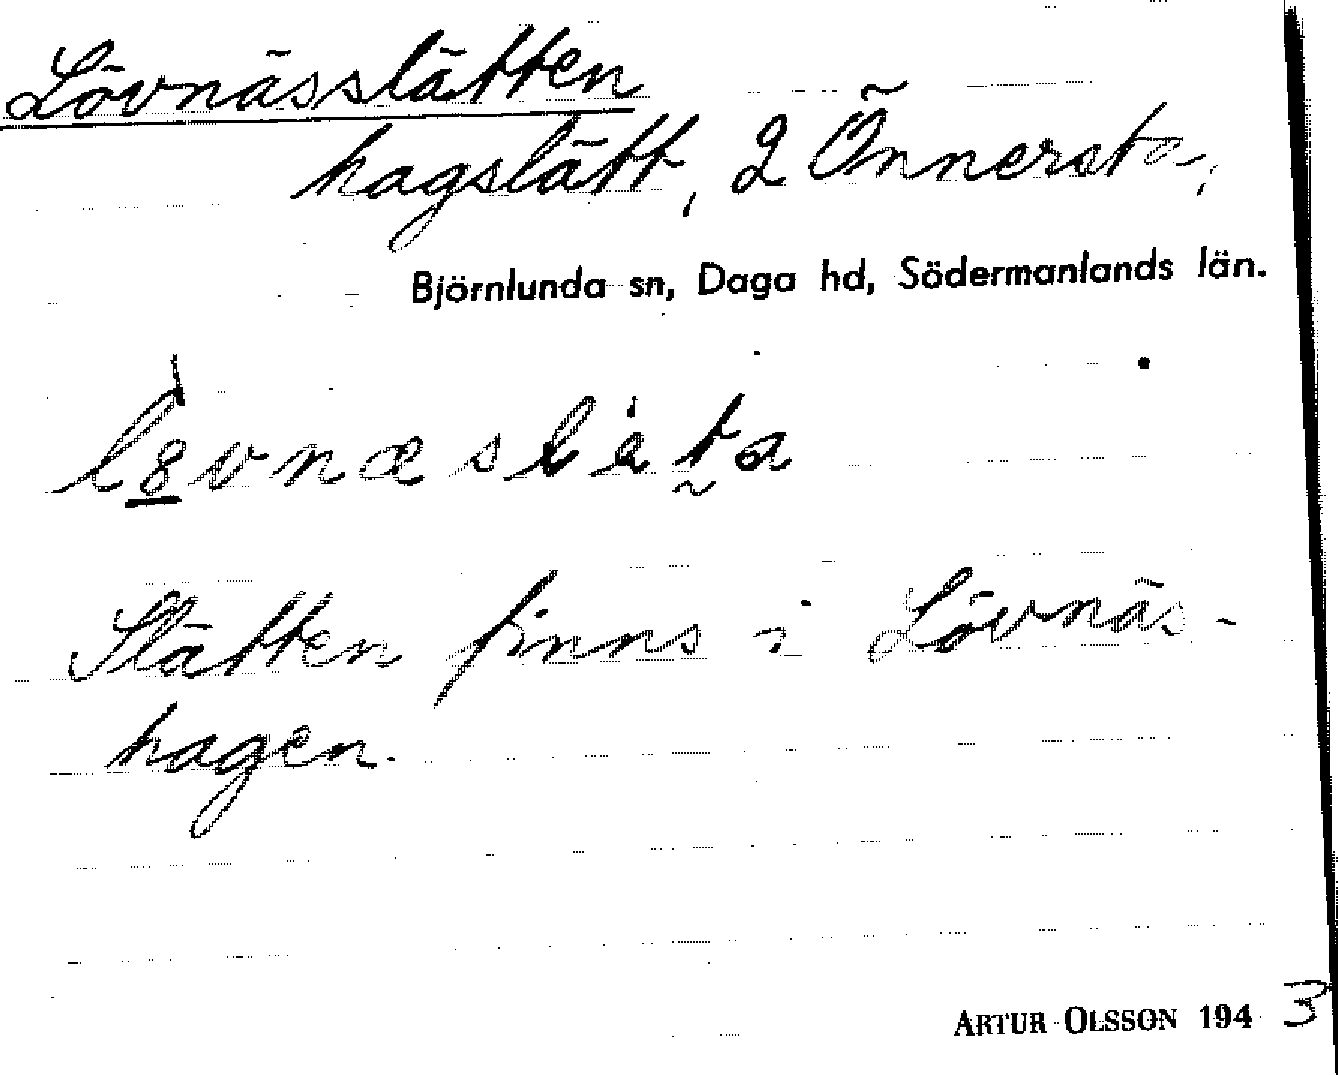 Lövnässlätten
hagslätt, 2 Önnersta,
Björnlunda sn, Daga hd, Södermanlands län.
Slätten finns i Lövnäs-
hagen.
ARTUR OLSSON 1943